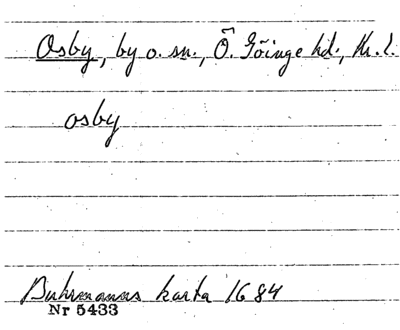 Osby, by o. sn., Ö. Göinge hd., Kr. l.
osby
Buhrmanns karta 1684
Nr 5433